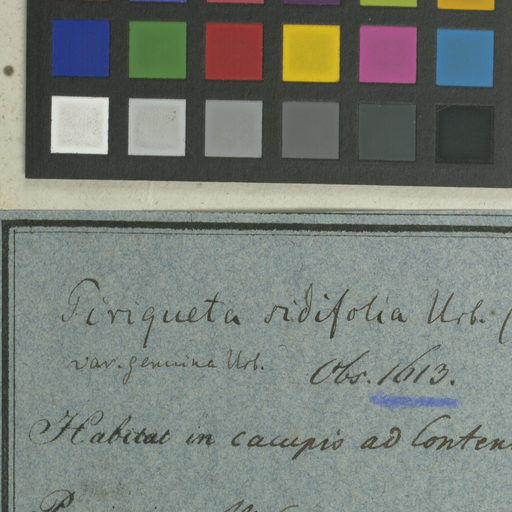 Piriqueta sidifolia Urb. (
var. genuina Urb.
Obs. 1613.
Habitat in campis ad Conten